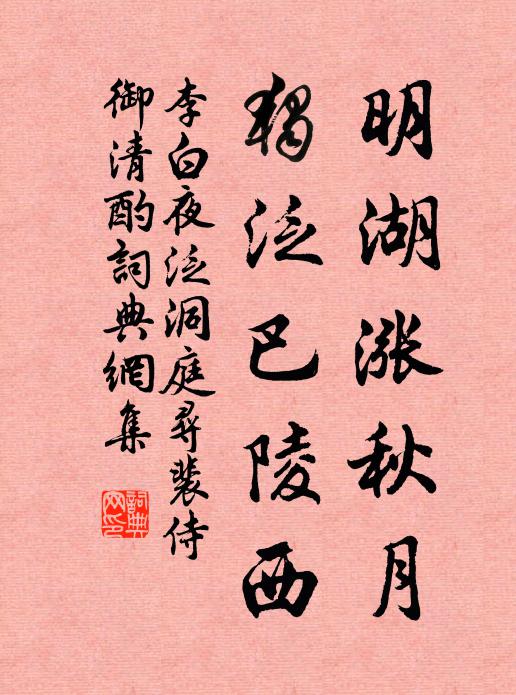 明湖涨秋月
独泛巴陵西
李白夜泛洞庭尋裴侍
御清酌詞典網集
詞典
网印